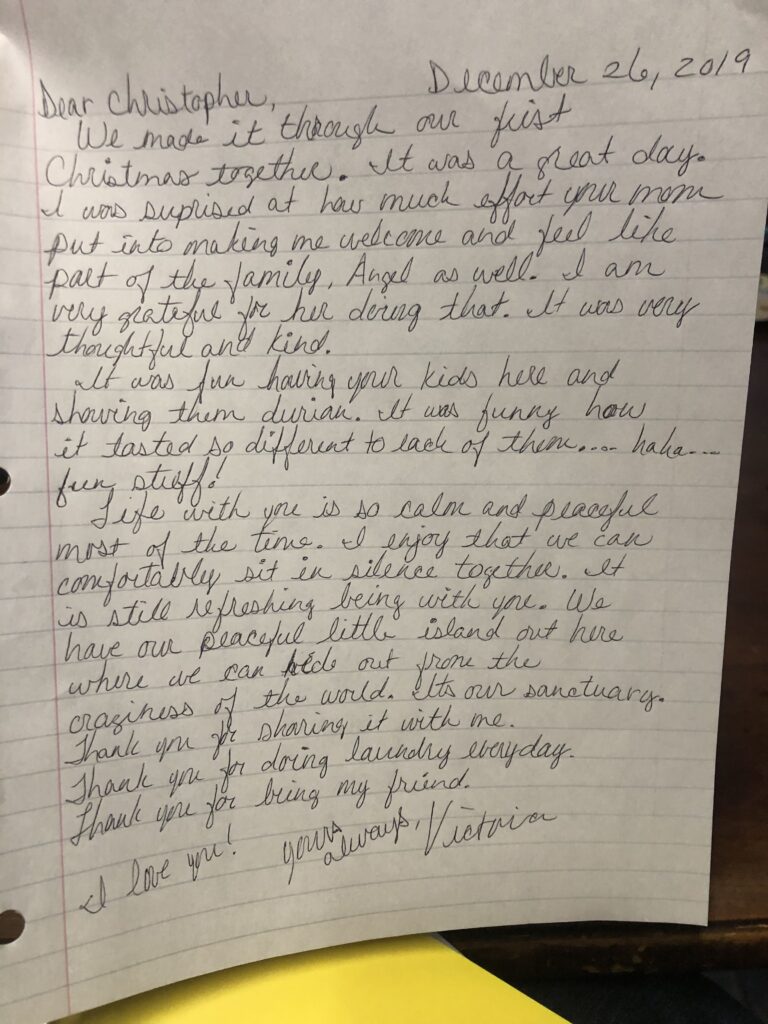 December 26, 2019
Dear Christopher,
We made it through our first
Christmas together. It was a great day.
I was suprised at how much effort your mom
put into making me welcome and feel like
part of the family, Angel as well. I am
very grateful for her doing that. It was very
thoughtful and kind.
It was fun having your kids here and
showing them durian. It was funny how
it tasted so different to each of them.... haha...
fun stuff!
Life with you is so calm and peaceful
most of the time. I enjoy that we can
comfortably sit in silence together. It
is still refreshing being with you. We
have our peaceful little island out here
where we can hide out from the
craziness of the world. Its our sanctuary.
Thank you for sharing it with me.
Thank you for doing laundry everyday.
Thank you for being my friend.
I love you! yours always, Victoria